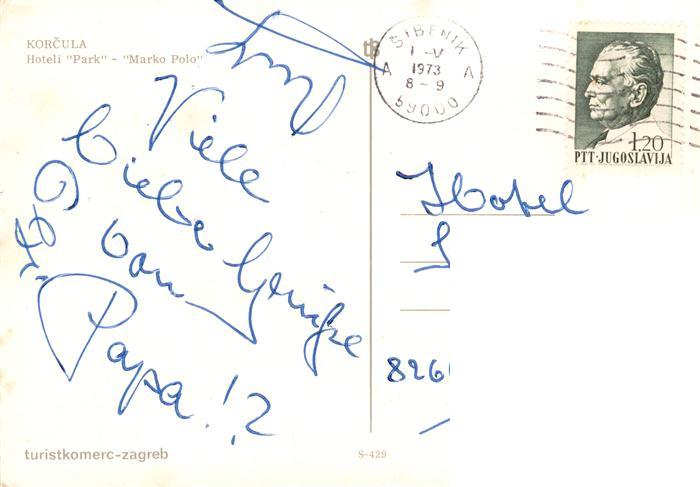 KORČULA
Hoteli "Park" - "Marko Polo"
Viele
liebe Grüße
von
Papa!?
ŠIBENIK
1 -V
1973
8 - 9
A A
59000
1.20
PTT·JUGOSLAVIJA
Hotel
826
turistkomerc-zagreb
S-429